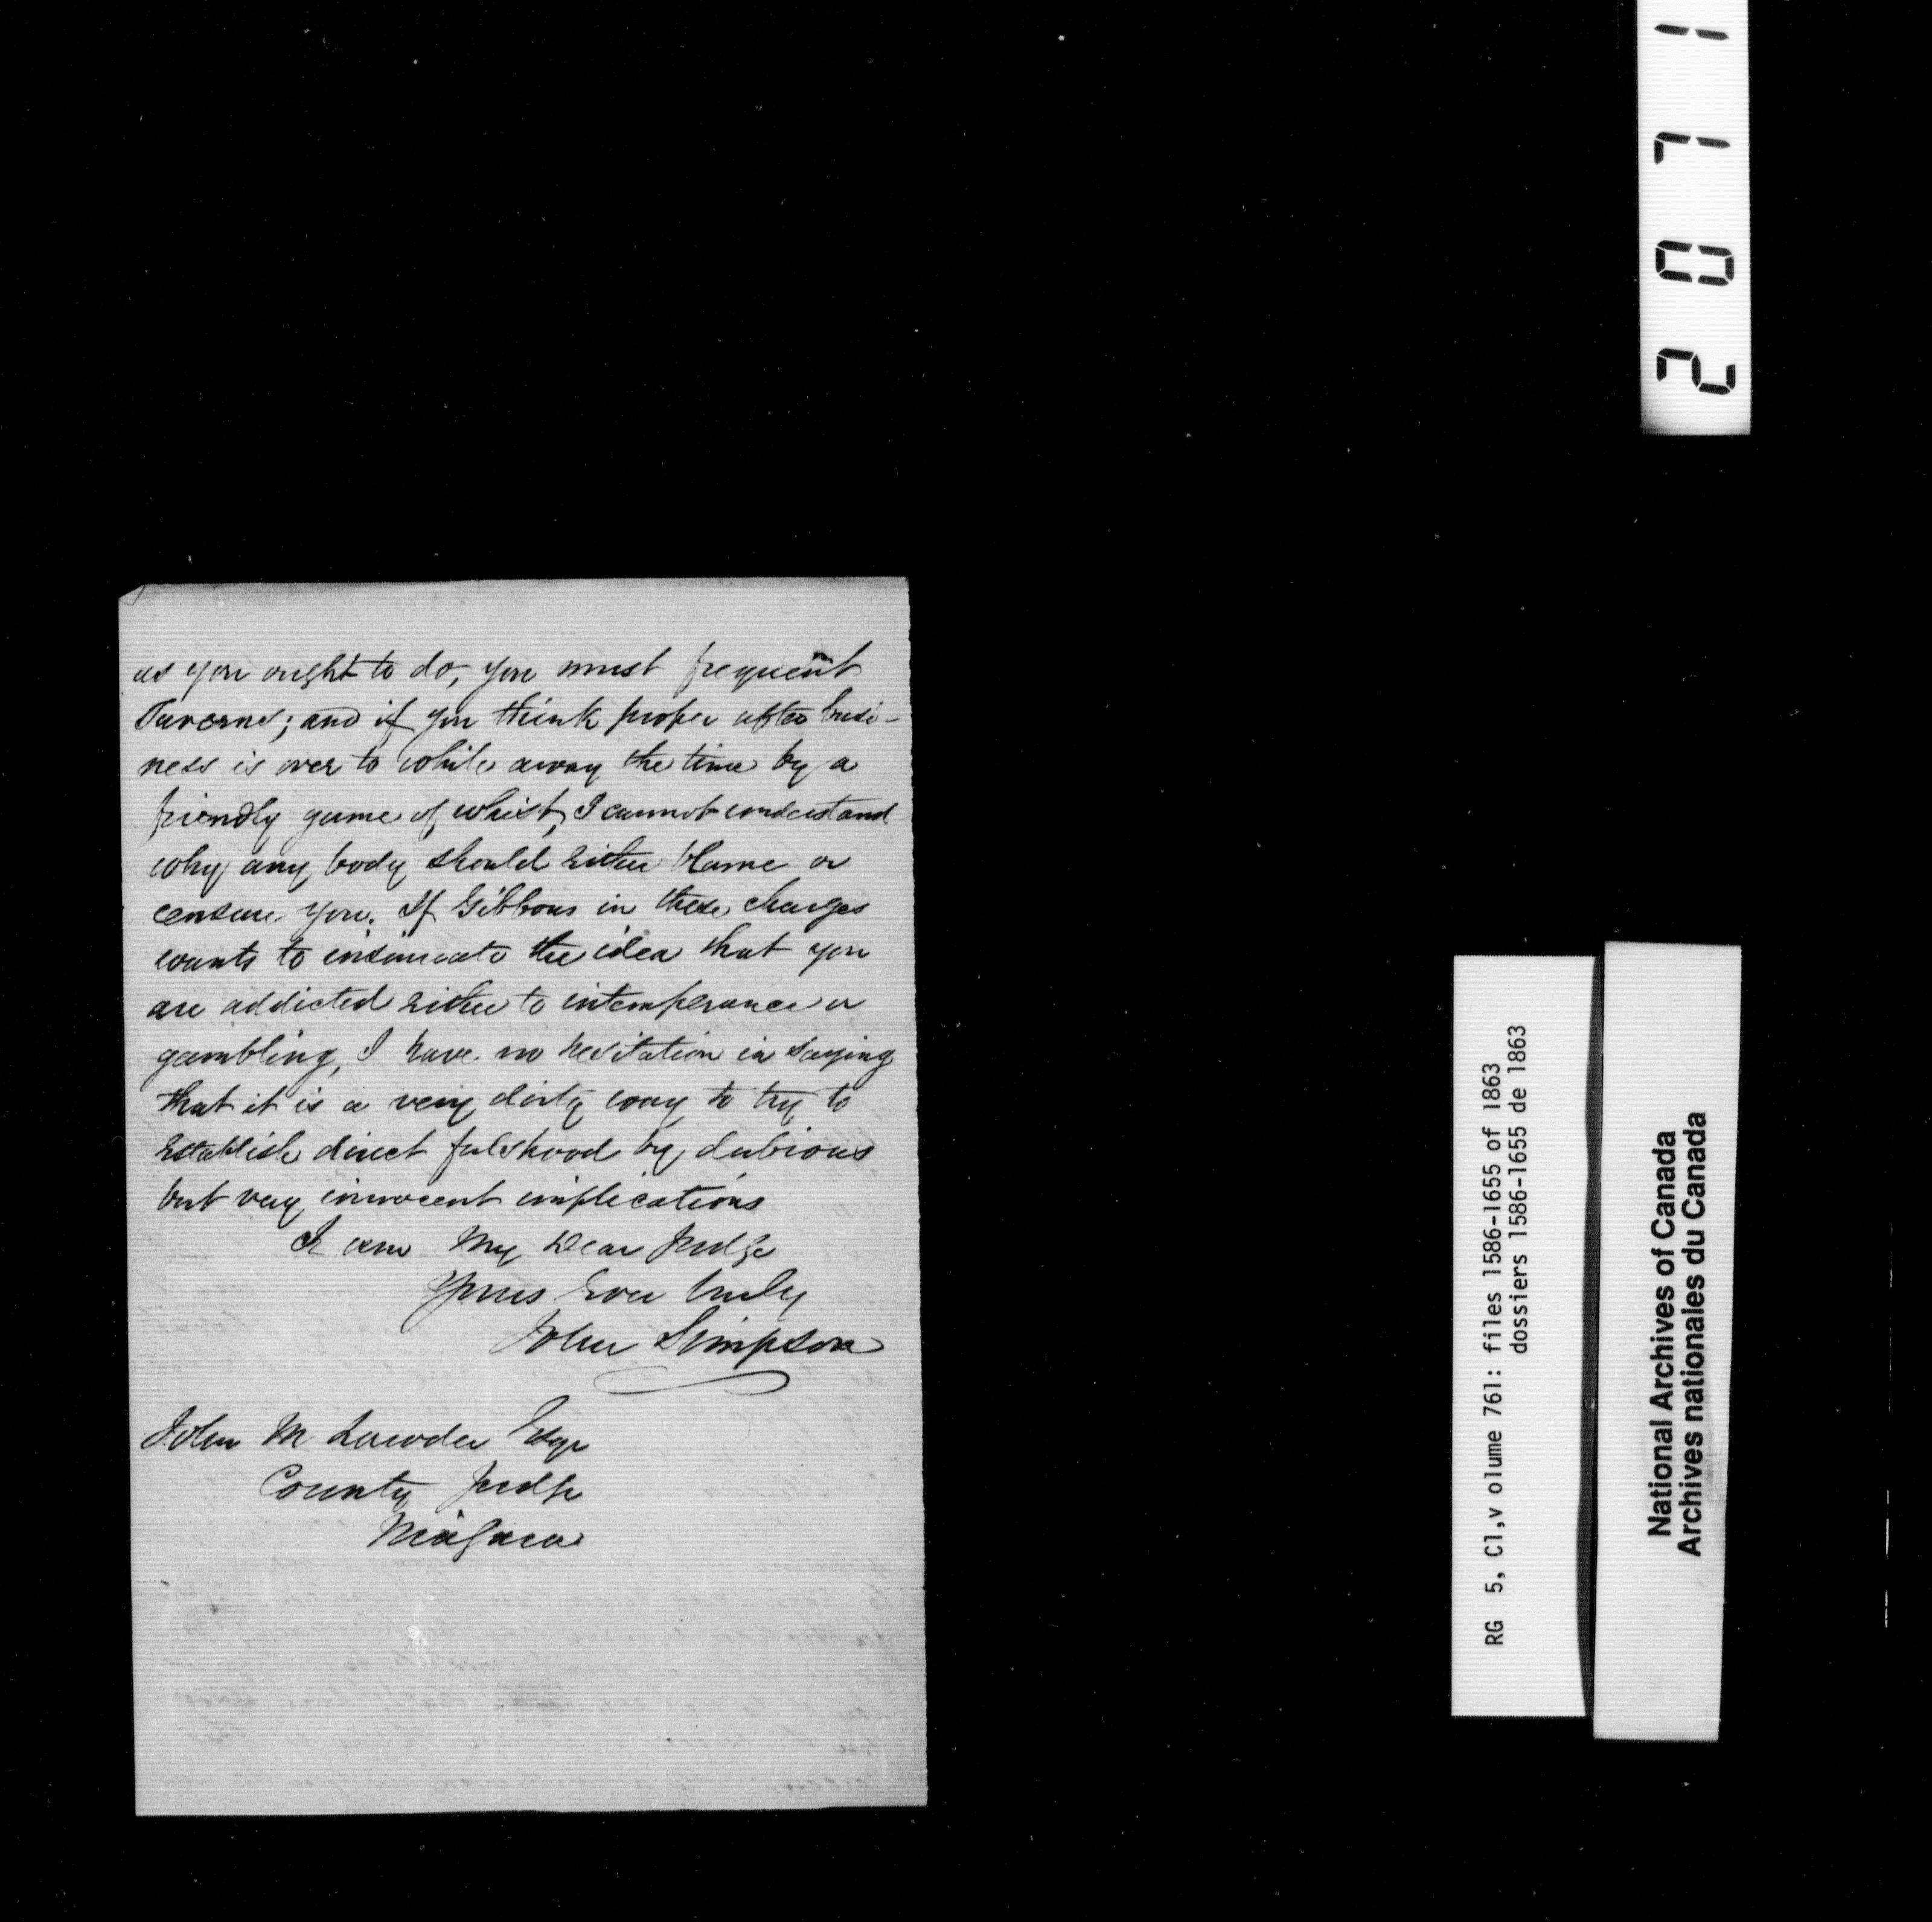 as you ought to do, you must frequent
Taverns; and if you think proper after busi-
ness is over to while away the time by a
friendly game of whist, I cannot understand
why any body should either blame or
censure you. If Gibbons in these charges
wants to insinuate the idea that you
are addicted either to intemperance or
gambling, I have no hesitation in saying
that it is a very dirty way to try to
establish direct falshood by dubious
but very innocent implications
I am My Dear Judge
Yours Ever truly
John Simpson
John M Lawder Esqr
County Judge
Niagara
2071
RG 5, C1,v olume 761: files 1586-1655 of 1863
dossiers 1586-1655 de 1863
National Archives of Canada
Archives nationales du Canada